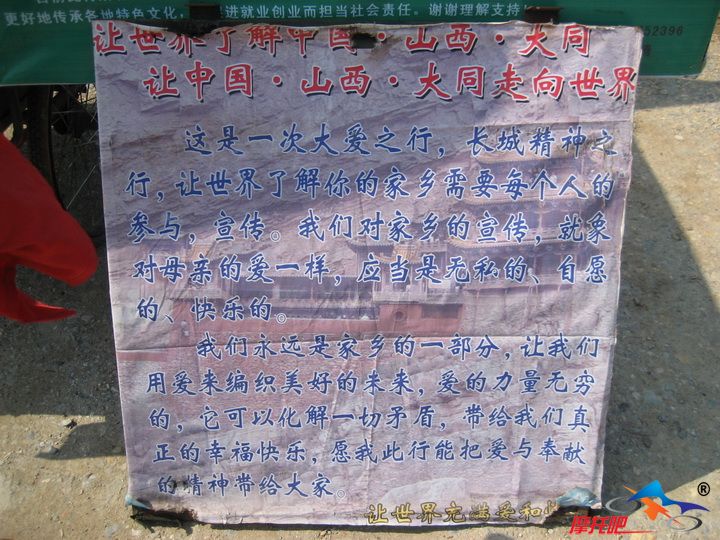 更好地传承各地特色文化,
进就业创业而担当社会责任。谢谢理解支持!
52396
让世界了解中国·山西·大同
让中国·山西·大同走向世界
这是一次大爱之行,长城精神之
行,让世界了解你的家乡需要每个人的
参与,宣传。我们对家乡的宣传,就象
对母亲的爱一样,应当是无私的、自愿
的、快乐的。
我们永远是家乡的一部分,让我们
用爱来编织美好的未来,爱的力量无穷
的,它可以化解一切矛盾,带给我们真
正的幸福快乐,愿我此行能把爱与奉献
的精神带给大家。
让世界充满爱和
摩托吧®